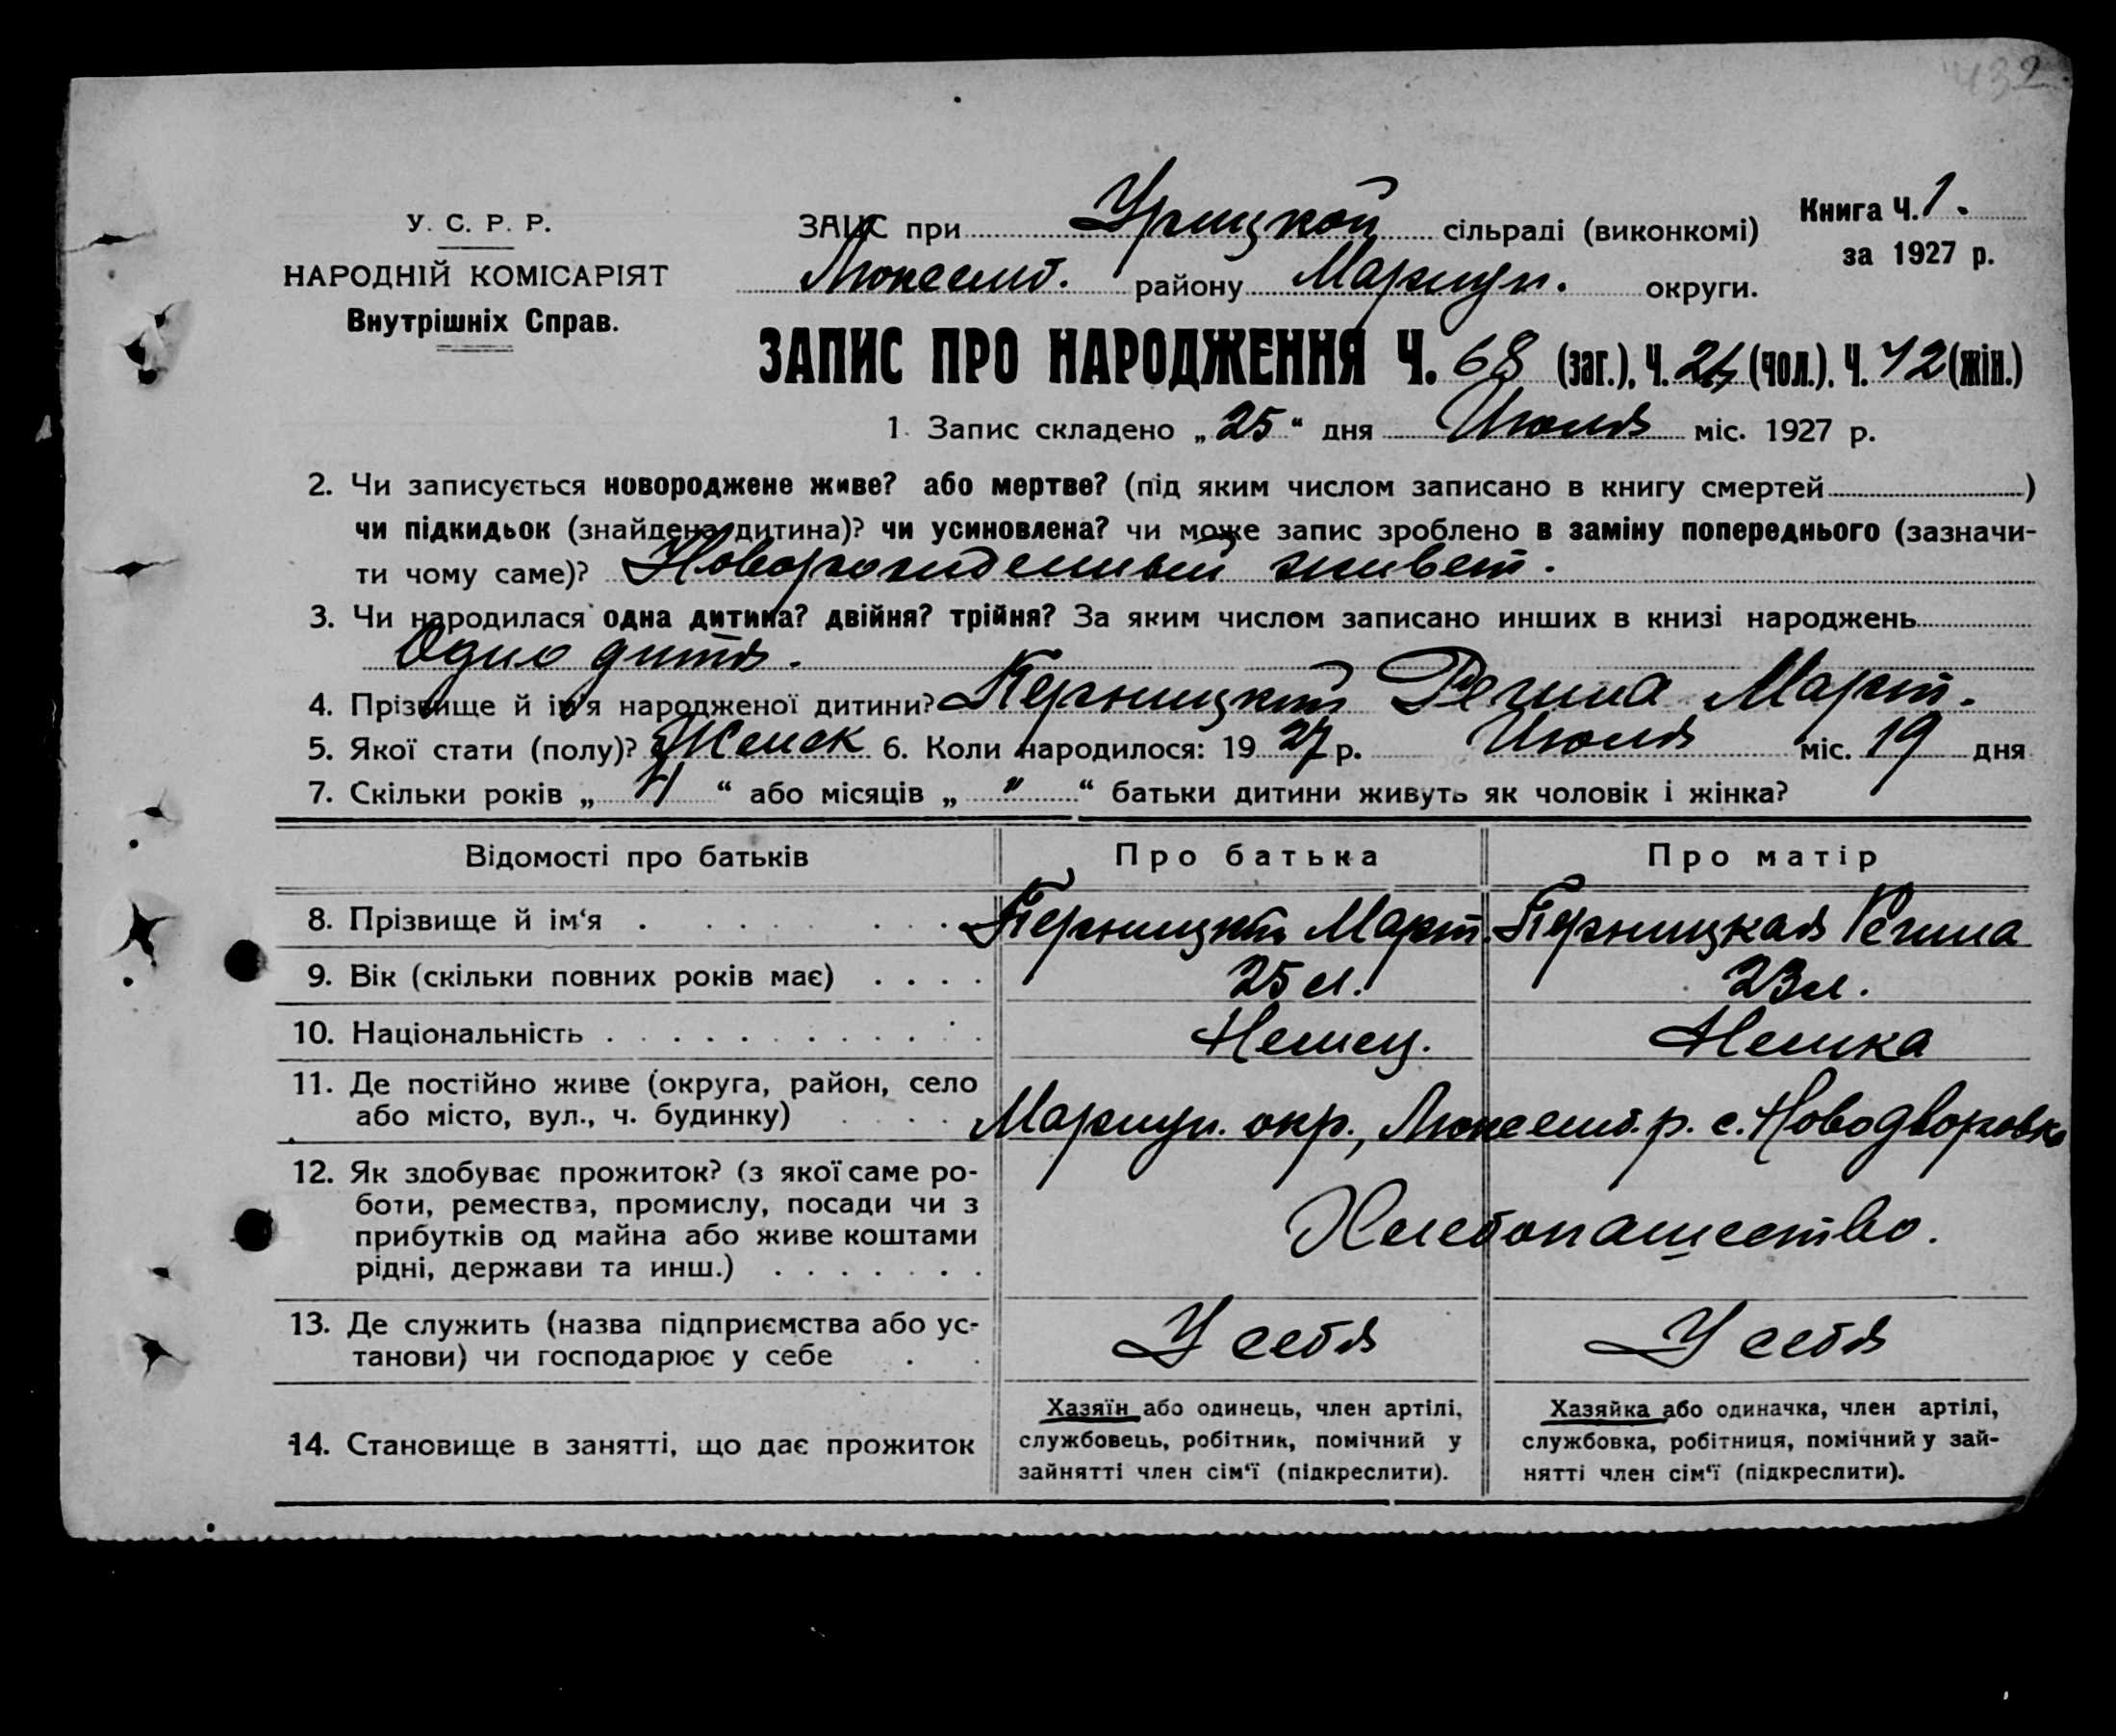 432
У. С. Р. Р.
НАРОДНІЙ КОМІСАРІЯТ
Внутрішніх Справ.
ЗАЦС при Урицкой сільраді (виконкомі)
Люксемб. району Мариуп. округи.
Книга Ч. 1.
за 1927 р.
ЗАПИС ПРО НАРОДЖЕННЯ Ч. 68 (заг.), Ч. 26 (чол.), Ч. 42 (жін.)
1. Запис складено „25“ дня Июля міс. 1927 р.
2. Чи записується новороджене живе? або мертве? (під яким числом записано в книгу смертей )
чи підкидьок (знайдена дитина)? чи усиновлена? чи може запис зроблено в заміну попереднього (зазначи-
ти чому саме)? Новорожденный живет.
3. Чи народилася одна дитина? двійня? трійня? За яким числом записано инших в книзі народжень
Одно дитя.
4. Прізвище й ім'я народженої дитини? Регина Март.
5. Якої стати (полу)? Женск 6. Коли народилося: 1927 р. Июля міс. 19 дня
7. Скільки років „ 4 “ або місяців „ " “ батьки дитини живуть як чоловік і жінка?
Відомості про батьків Про батька Про матір
8. Прізвище й ім‘я Март. Регина
9. Вік (скільки повних років має) 25 л. 23 л.
10. Національність Немец. Немка
11. Де постійно живе (округа, район, село
або місто, вул., ч. будинку) Мариуп. окр., Люксемб. р. с. Новодворовка
12. Як здобуває прожиток? (з якої саме ро-
боти, ремества, промислу, посади чи з
прибутків од майна або живе коштами
рідні, держави та инш.) Хлебопашество.
13. Де служить (назва підприємства або ус-
танови) чи господарює у себе У себя У себя
14. Становище в занятті, що дає прожиток
Хазяїн або одинець, член артілі,
службовець, робітник, помічний у
зайнятті член сім‘ї (підкреслити).
Хазяйка або одиначка, член артілі,
службовка, робітниця, помічний у зай-
нятті член сім‘ї (підкреслити).